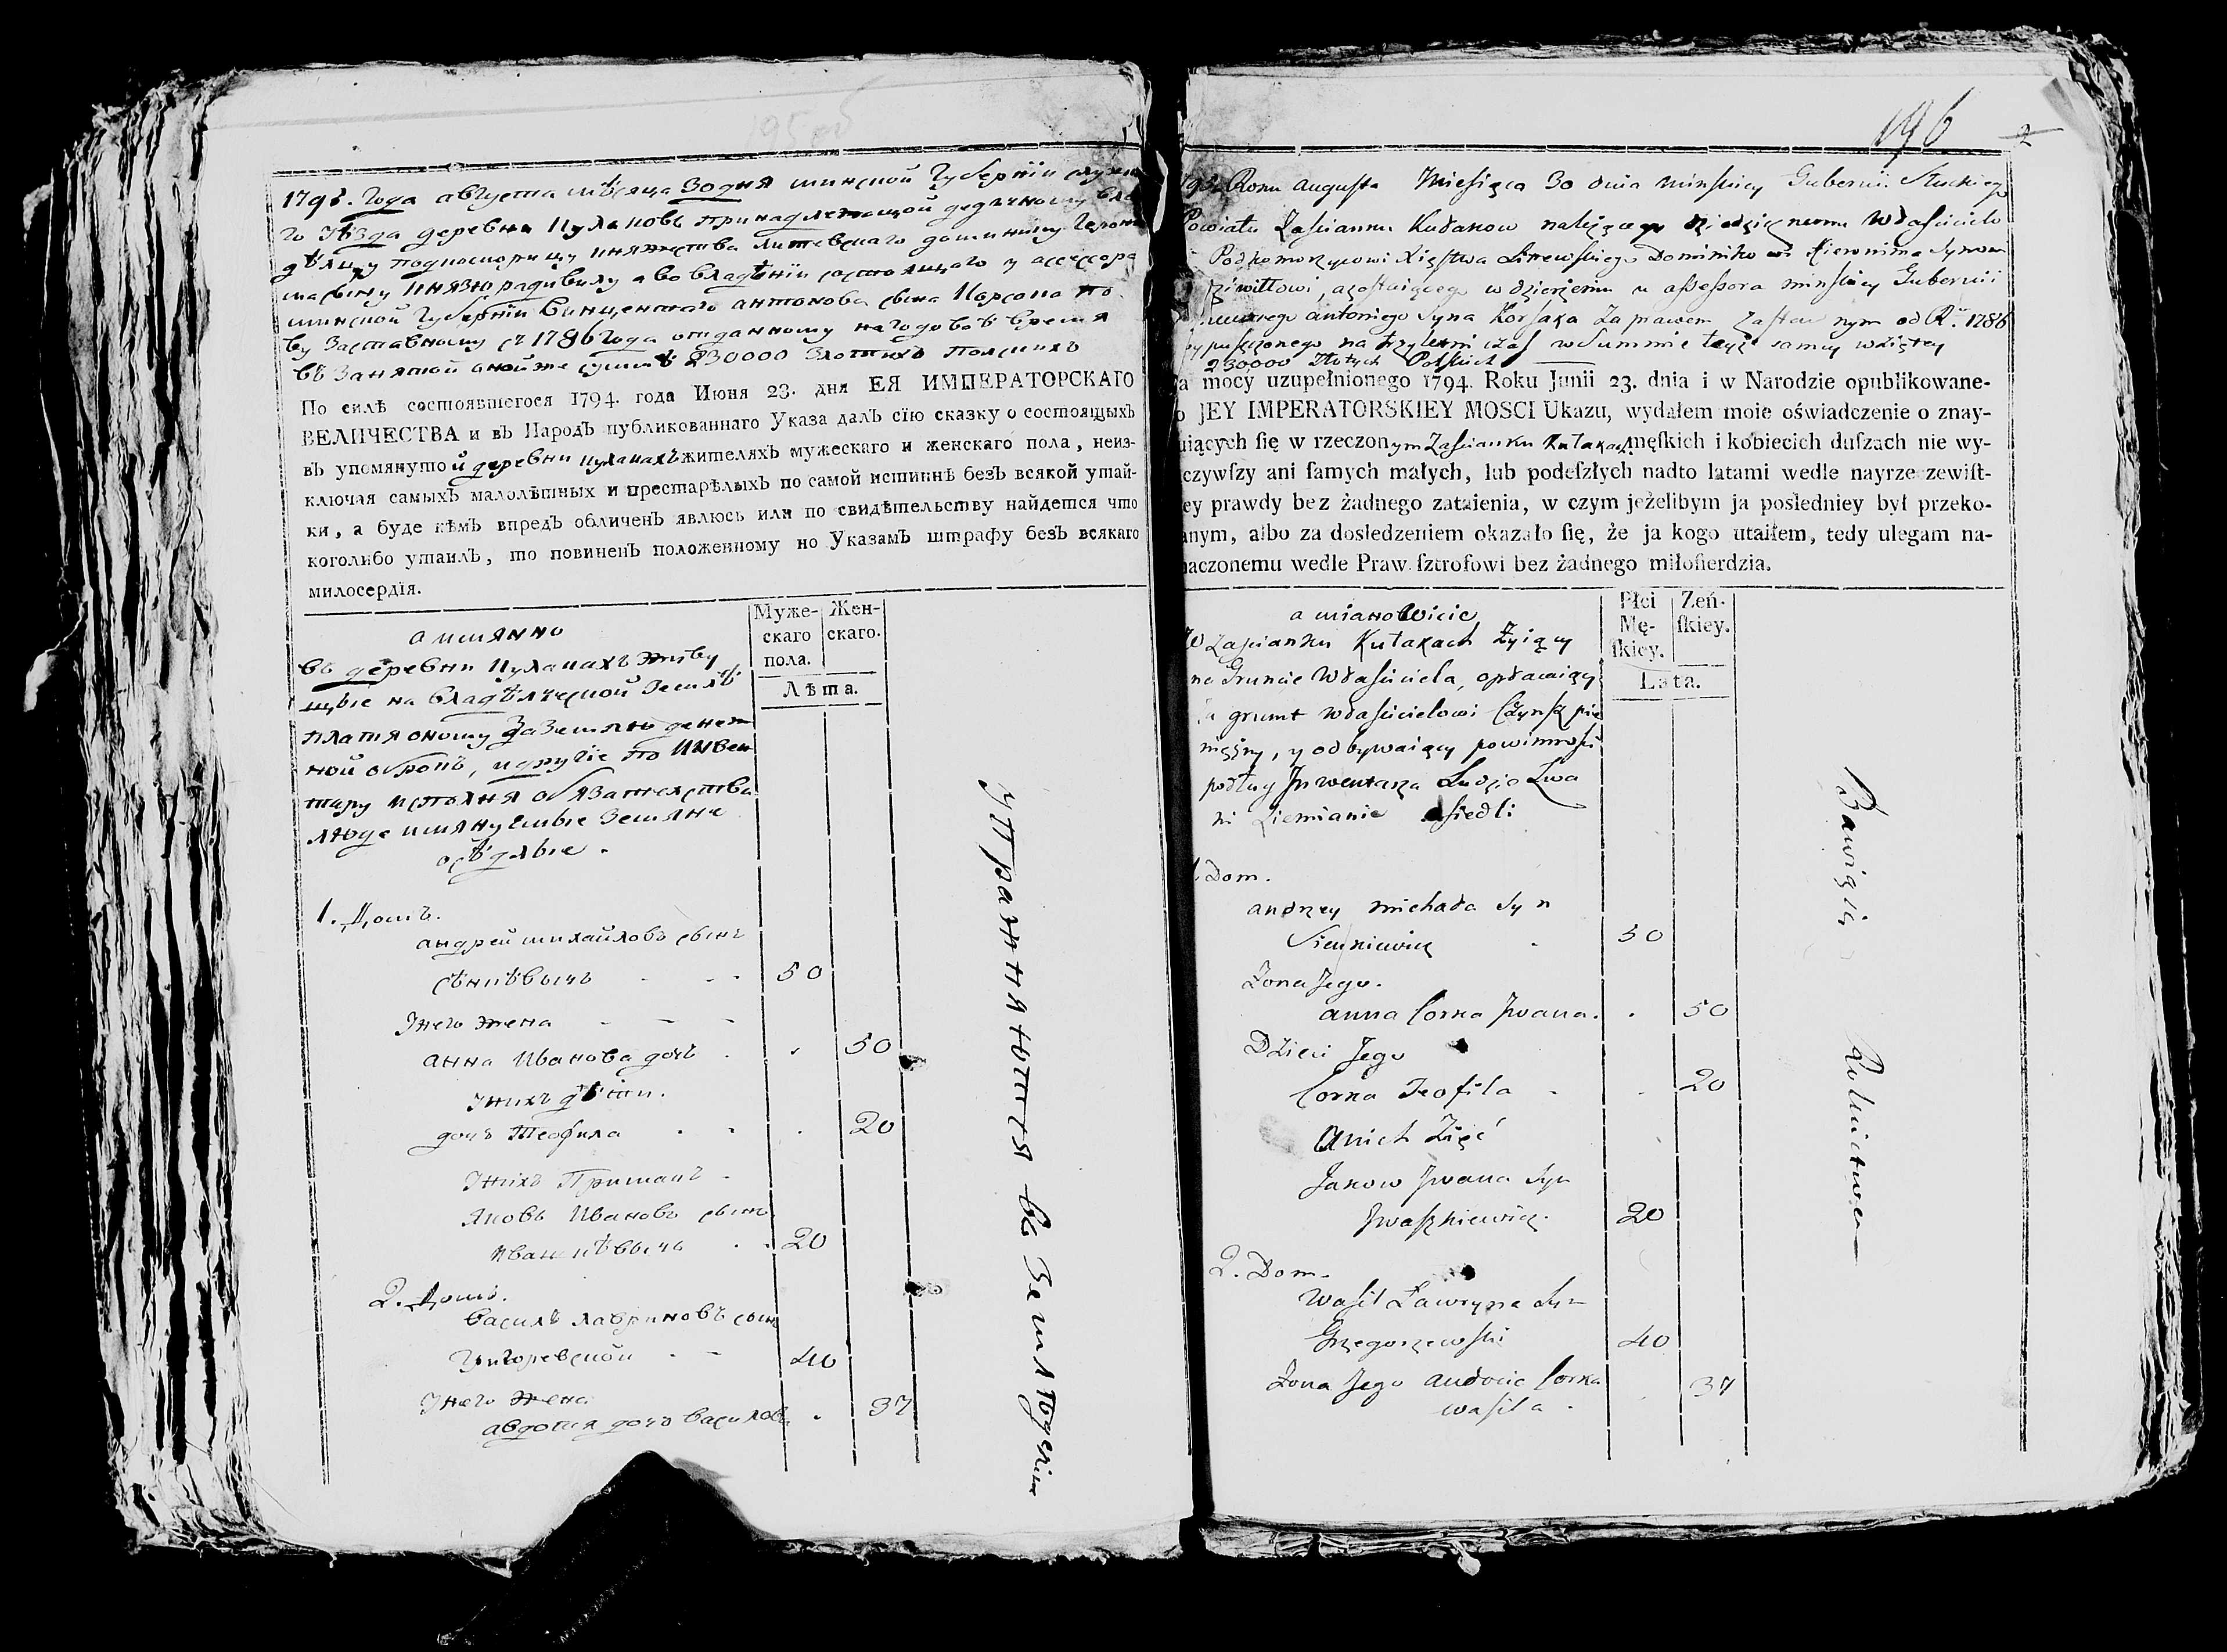 195 об
1795. Года августа мѣсяца 30 дня минской Губерніи слуцко
го уѣзда деревни Кулаковъ принадлежащой дедичному вла
дѣльцу подкоморищу княжества литевскаго доминику Герони
ма сыну князю радивилу а во владѣніи состоящаго у ассессора
минской Губерніи Винцентаго антонова сына Корсака по
ву заставному съ 1786 года отданному на годовоѣ время
въ занятой оной же суммѣ 230000 злотыхъ польскихъ
По силѣ состоявшегося 1794. года Июня 23. дня ЕЯ ИМПЕРАТОРСКАГО
ВЕЛИЧЕСТВА и въ Народъ публикованнаго Указа далъ сїю сказку о состоящыхъ
въ упомянутой деревни кулакахъ жителяхъ мужескаго и женскаго пола, неиз-
ключая самыхъ малолѣтныхъ и престарѣлыхъ по самой истиннѣ безъ всякой утай-
ки, а буде кѣмъ впредъ обличенъ явлюсь или по свидѣтельству найдется что
коголибо утаилъ, то повиненъ положенному по Указамъ штрафу безъ всякаго
милосердїя.
а имянно
Муже-
скаго
пола.
Жен-
скаго.
Лѣта.
въ деревни Кулакахъ живу
щые на владѣлческой землѣ
платя оному за землю денеж
ной оброкъ, и другіе по Инвен
тару исполня обязателства
люде имянуемые земяне
осѣдлые.
1. Домъ.
андрей михайловъ сынъ
сѣнкѣвычъ 50
У него жена
анна Иванова дочь 50
У нихъ дѣти.
дочь Теофила 20
У нихъ Примакъ
яковъ Ивановъ сынъ
Ивашкѣвычъ 20
2. Домъ.
василь лавриновъ сынъ
Григоревской 40
У него жена
авдотия дочь василова 37
упражняются въ земледелии
196 2
Roku Augusta Miesiąca 30 dnia Minskiey Gubernii Słuckiego
Powiatu Zaścianku Kułakow należącego dziedzicznemu Właścicielo
Podkomorzycowi Xięstwa Litewskiego Dominiko wi Hieronima Synowi
dziwiłłowi, a zostaiącego w dzierżeniu u assessora minskiey Gubernii
Antoniego Syna Korsaka Za prawem Zastawnym od R. 1786
puszczonego na trzyletni czas w Summie teyże samey wziętey
230000 Złotych Polskich
a mocy uzupełnionego 1794. Roku Junii 23. dnia i w Narodzie opublikowane-
o JEY IMPERATORSKIEY MOSCI Ukazu, wydałem moie oświadczenie o znay-
uiących ſię w rzeczonym Zaścianku Kułakach męſkich i kobiecich duſzach nie wy-
czywſzy ani ſamych małych, lub podeſzłych nadto latami wedle nayrzeczewiſt-
ey prawdy bez żadnego zataienia, w czym jeżelibym ja poſledniey był przeko-
anym, albo za dosledzeniem okazało ſię, że ja kogo utaiłem, tedy ulegam na-
aczonemu wedle Praw ſztrofowi bez żadnego miłoſierdzia.
a mianowicie
Płci
Mę-
ſkiey.
Żeń-
ſkiey.
Lata.
W Zaścianku Kułakach Żyiący
na Gruncie Właściciela, opłacaiący
za grunt Właścicielowi Czynsz pie
niężny, y odbywaiący powinności
podług Inwentarza Ludzie Zwa
ni Ziemianie osiedli
1. Dom.
Andrzey Michała Syn
Sienkiewicz 50
Żona Jego.
Anna Corka Jwana. 50
Dzieci Jego
Corka Teofila 20
U nich Zięć
Jakow Jwana Syn
Jwaszkiewicz. 20
2. Dom.
Wasil Ławryna Syn
Grzegorzewski 40
Żona Jego Audocia Corka 37
Wasila
Bawią się Rolnictwem